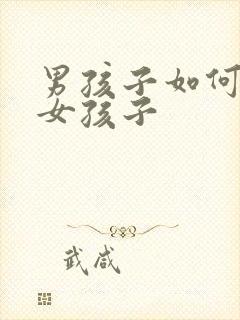 男孩子如何
女孩子
武咸